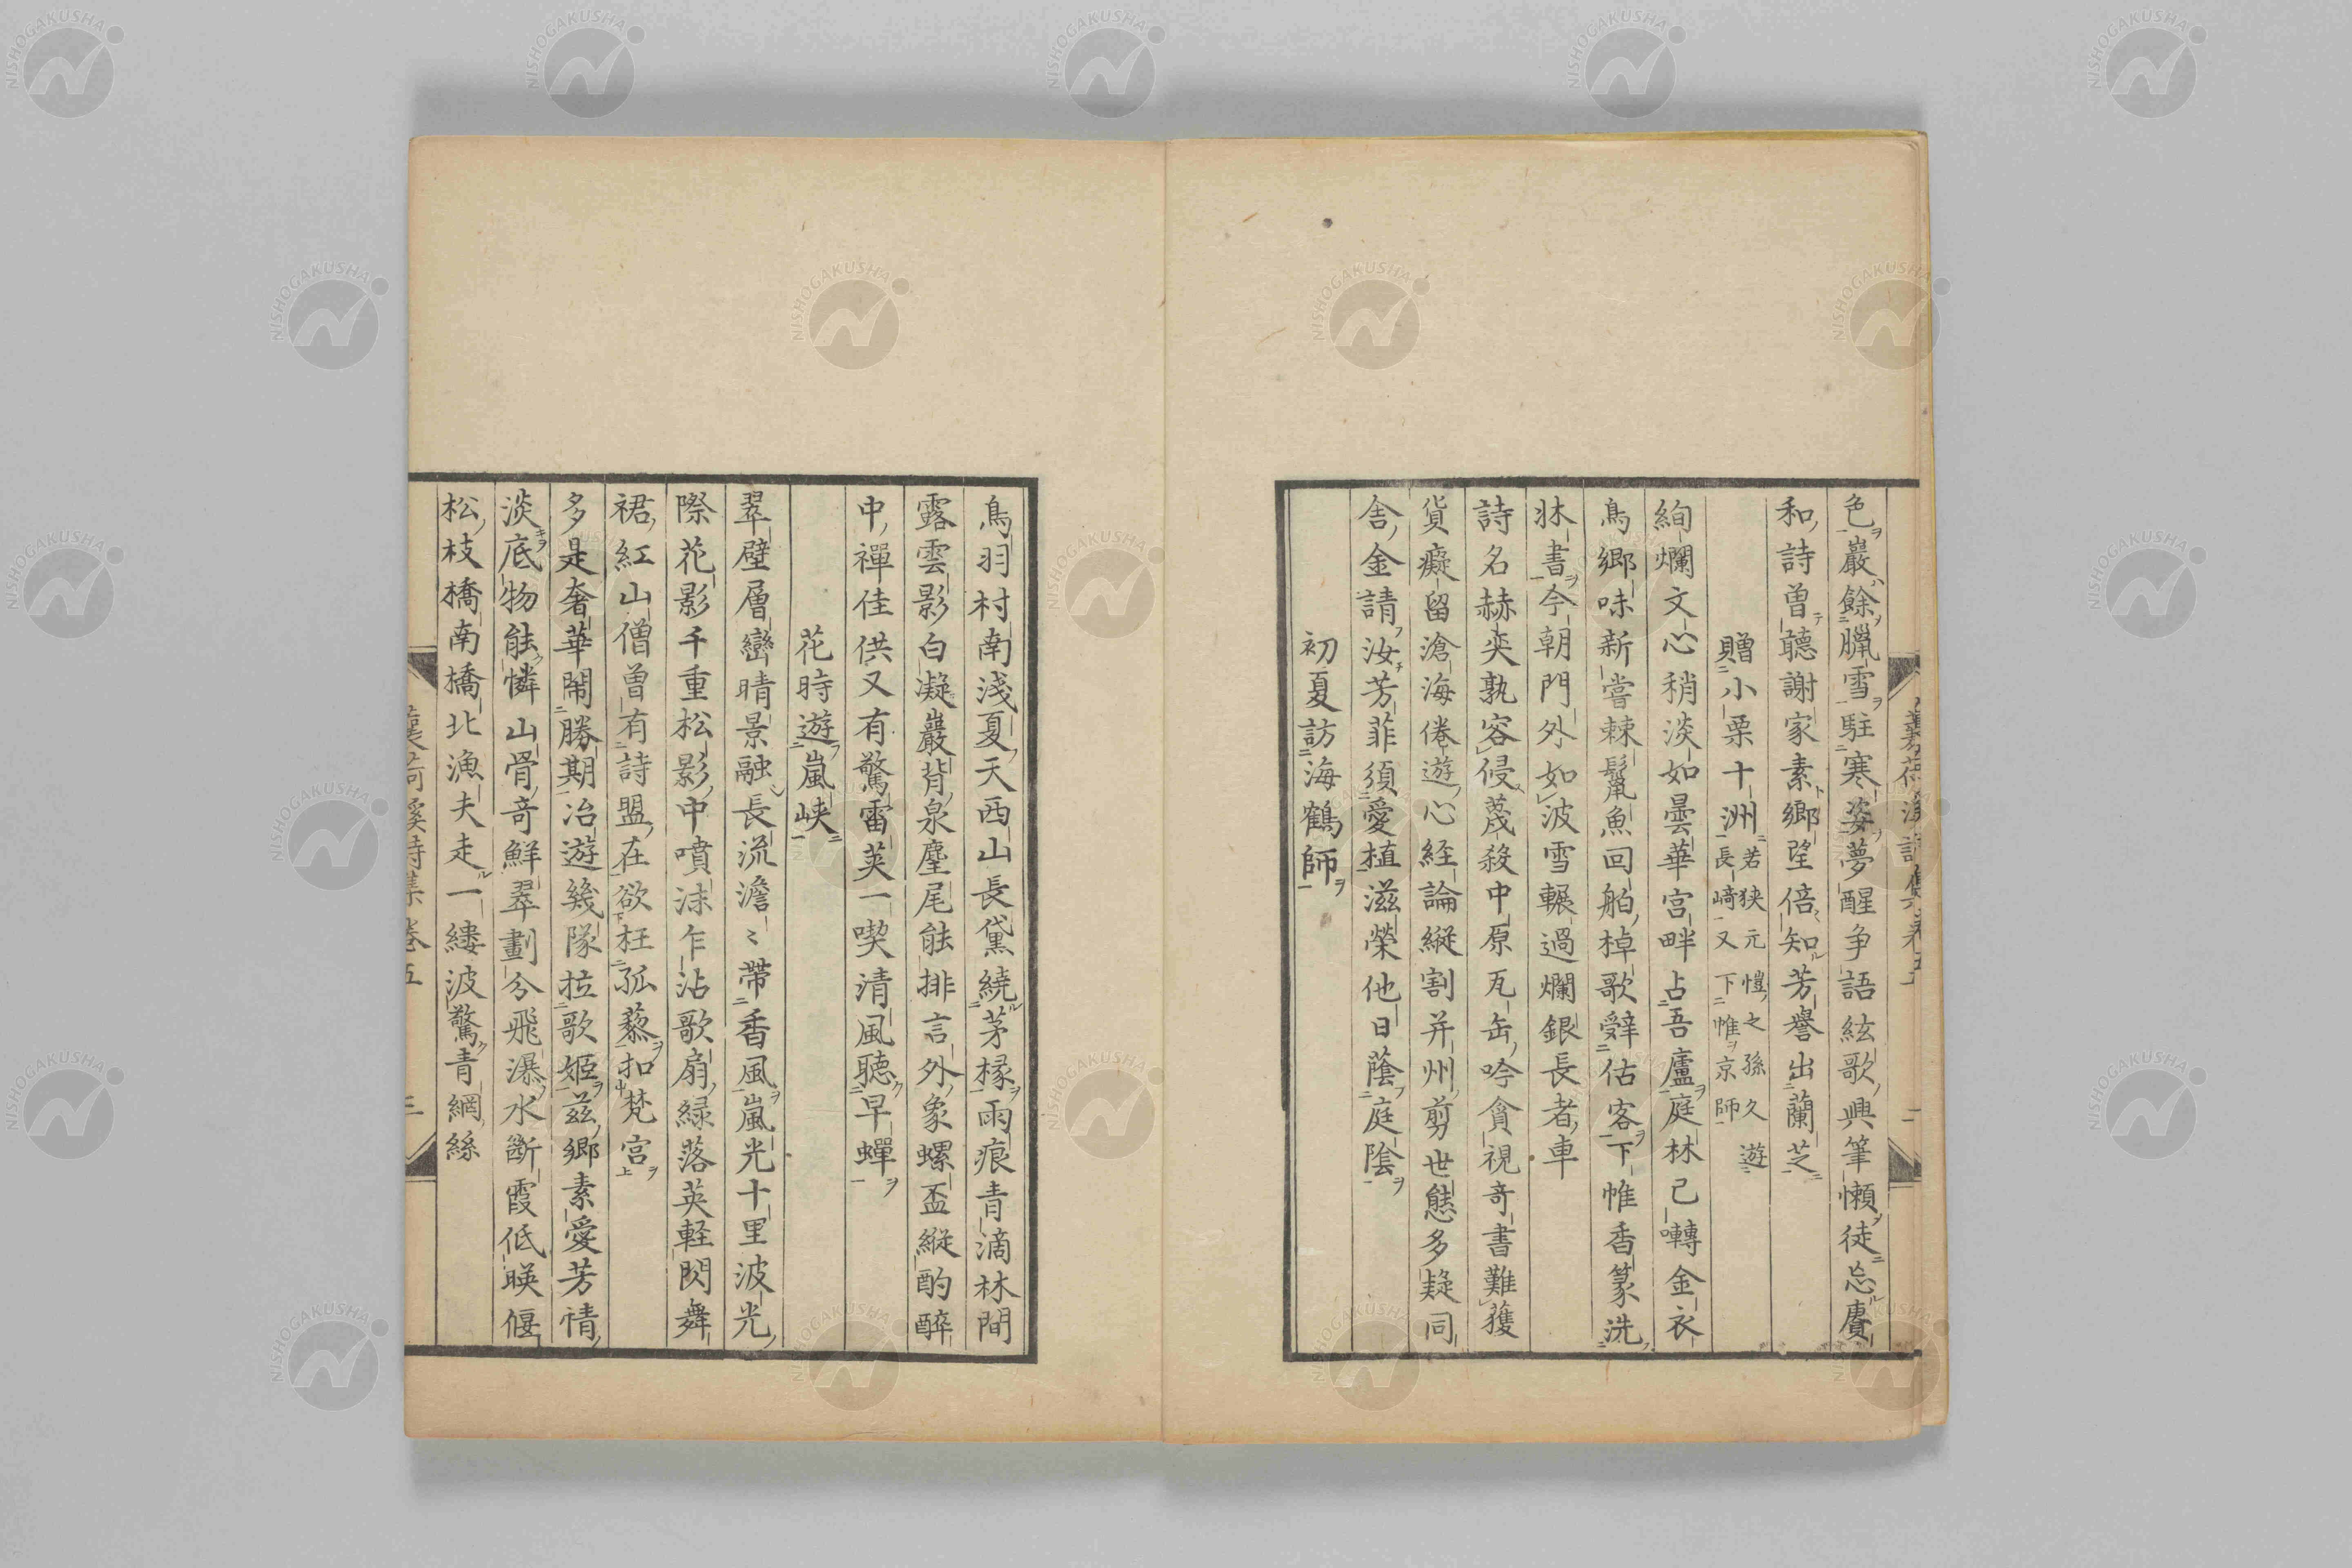 色巖餘臘雪駐寒姿夢醒争語絃歌興筆懶徒忘賡
和詩曽聽謝家素郷望倍知芳譽出蘭芝
贈小栗十洲若狭元愷之孫久遊長﨑又下帷京師
絢爛文心稍淡如曇華宮畔占吾廬庭林已囀金衣
鳥郷味新嘗棘鬣魚回舶棹歌辞估客下帷香篆洗
牀書今朝門外如波雪輾過爛銀長者車
詩名赫奕孰容侵蔑殺中原瓦缶吟貪視奇書難獲
貨癡留滄海倦遊心経論縦割并州剪世態多疑同
舎金請汝芳菲須愛植滋榮他日蔭庭陰
初夏訪海鶴師
鳥羽村南淺夏天西山長黛繞茅椽雨痕青滴林間
露雲影白凝巖背泉麈尾能排言外象螺盃縦酌醉
中禪佳供又有驚雷莢一喫清風聽早蟬
花時遊嵐峡
翠壁層巒晴景融長流澹〻帯香風嵐光十里波光
際花影千重松影中噴沫乍沾歌扇緑落英軽閃舞
裙紅山僧曽有詩盟在欲枉孤藜扣梵宮
多是奢華閙勝期冶遊幾隊拉歌姬茲郷素愛芳情
淡底物能憐山骨奇鮮翠劃分飛瀑水断霞低暎偃
松枝橋南橋北漁夫走一縷波驚青網絲
蘘荷溪詩集巻五
三
NISHOGAKUSHA